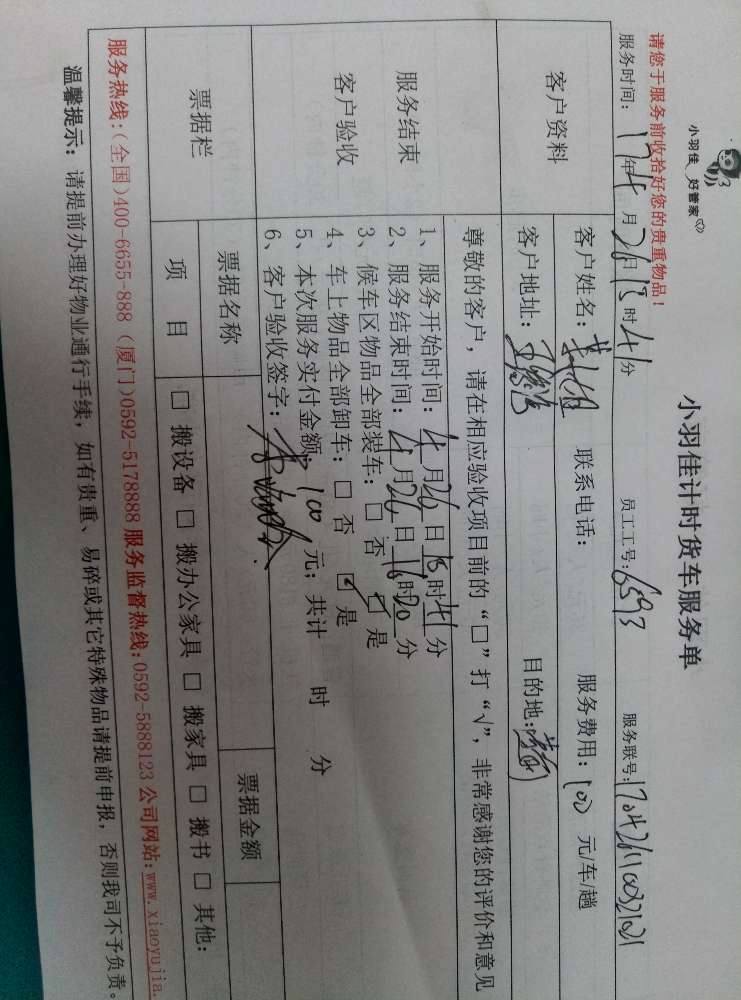 小羽佳 好管家
小羽佳计时货车服务单
请您于服务前收拾好您的贵重物品！
服务时间：17年4月26日15时41分 员工工号：6593 服务联号：
客户资料
客户姓名： 联系电话： 服务费用：100 元/车/趟
客户地址： 目的地：
尊敬的客户，请在相应验收项目前的“□”打“√”，非常感谢您的评价和意见
服务结束
客户验收
1、服务开始时间：4月26日15时41分
2、服务结束时间：4月26日16时20分
3、候车区物品全部装车：□ 否 ☑ 是
4、车上物品全部卸车：□ 否 ☑ 是
5、本次服务实付金额：100元；共计 时 分
6、客户验收签字：
票据栏
票据名称 票据金额
项 目 □ 搬设备 □ 搬办公家具 □ 搬家具 □ 搬书 □ 其他：
服务热线：(全国)400-6655-888 (厦门)0592-5178888 服务监督热线：0592-5888123 公司网站：www.xiaoyujia.
温馨提示：请提前办理好物业通行手续，如有贵重、易碎或其它特殊物品请提前申报，否则我司不予负责。